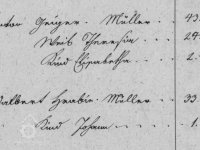 nton Geiger. Müller . . 43.
Weib Theresia . . . 29
Kind Elisabetha . . 2.
albert Hrabin. Müller . . 33
Kind Johann . . . . . 1.